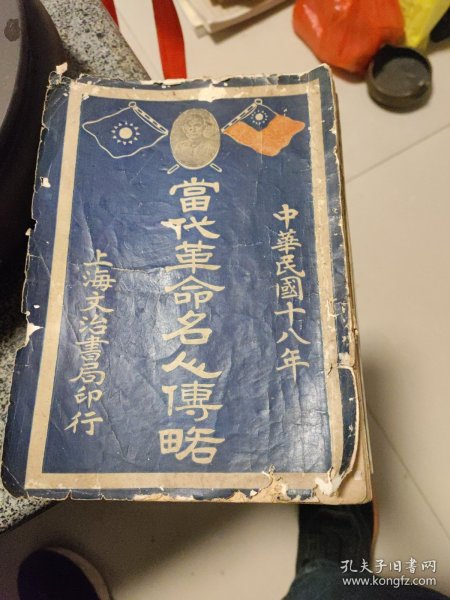 中華民國十八年
當代革命名人傳略
上海文治書局印行
孔夫子旧书网
www.kongfz.com